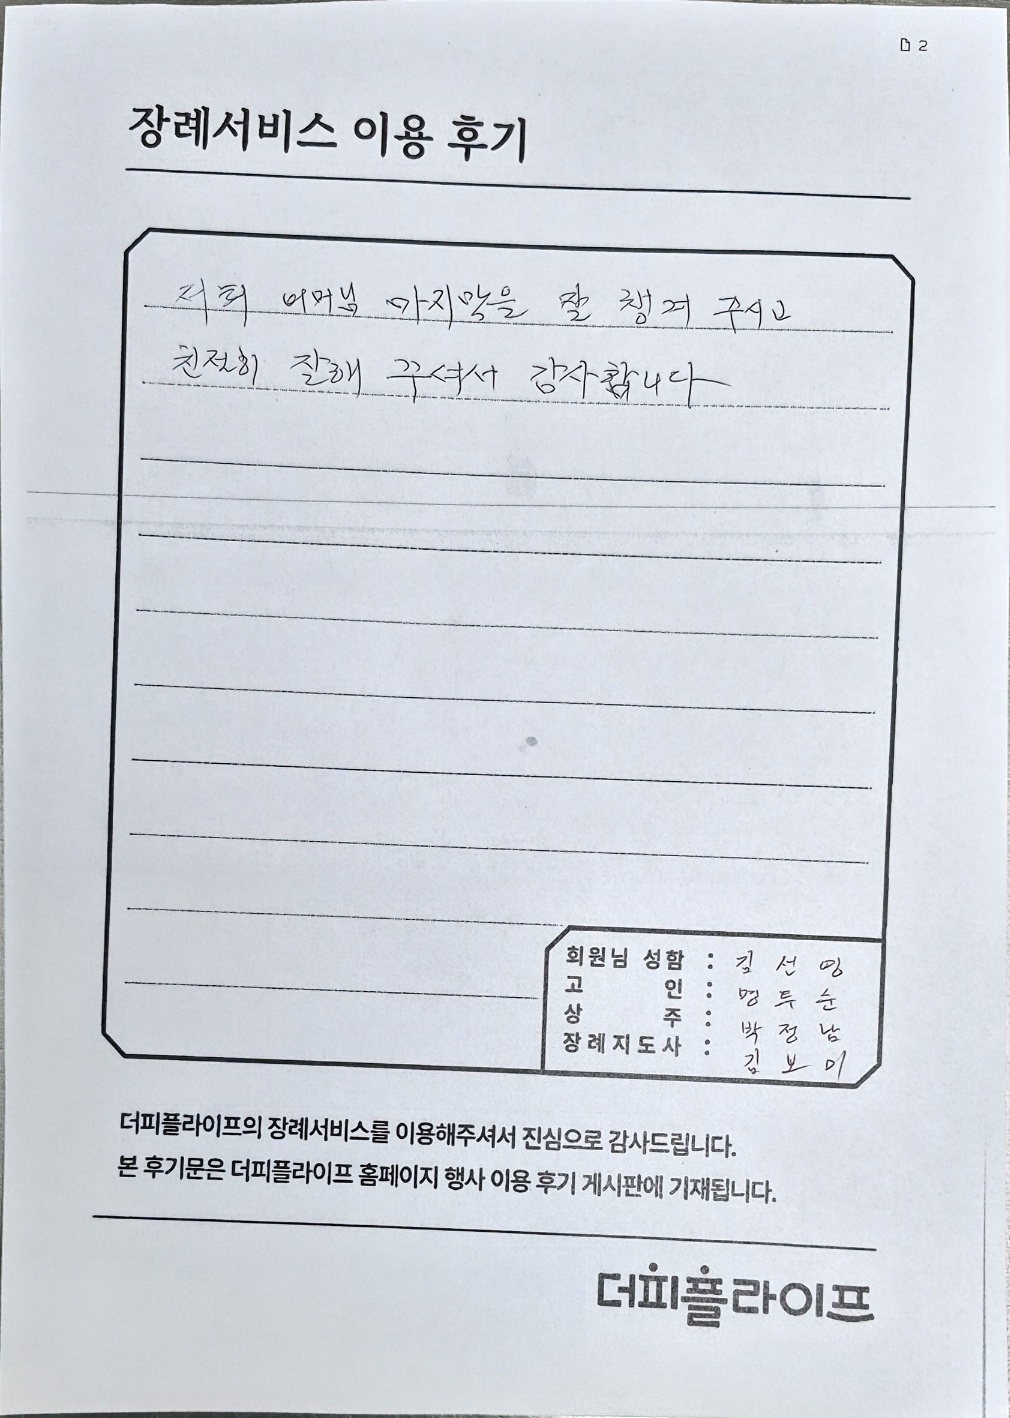 2
장례서비스 이용 후기
저희 어머님 마지막을 잘 챙겨 주시고
친절히 잘해 주셔서 감사합니다
회원님 성함 : 김선영
고 인 : 명투순
상 주 : 박정남
장례지도사 : 김보미
더피플라이프의 장례서비스를 이용해주셔서 진심으로 감사드립니다.
본 후기문은 더피플라이프 홈페이지 행사 이용 후기 게시판에 기재됩니다.
더피플라이프